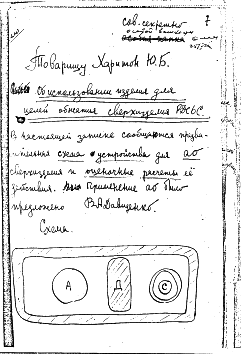 7
сов. секретно
особой важности
Товарищу Харитон Ю.Б.
Об использовании изделия для
целей обжатия сверхизделия РДС6С.
В настоящей записке сообщаются предва-
рительная схема устройства для АО
сверхизделия и оценочные расчеты её
действия. Применение АО было
предложено В.А Давиденко.
Схема.
А
Д
С